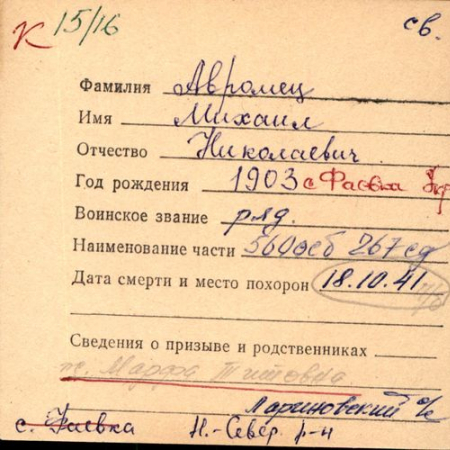 К 15/16 св.
Фамилия Авромец
Имя Михаил
Отчество Николаевич
Год рождения 1903 с. Фаевка Укр
Воинское звание ряд.
Наименование части 560осб 267 сд
Дата смерти и место похорон 18.10.41
Сведения о призыве и родственниках
ж. Марфа Титовна
Лариновский с/с
с. Фаевка Н.-Север. р-н